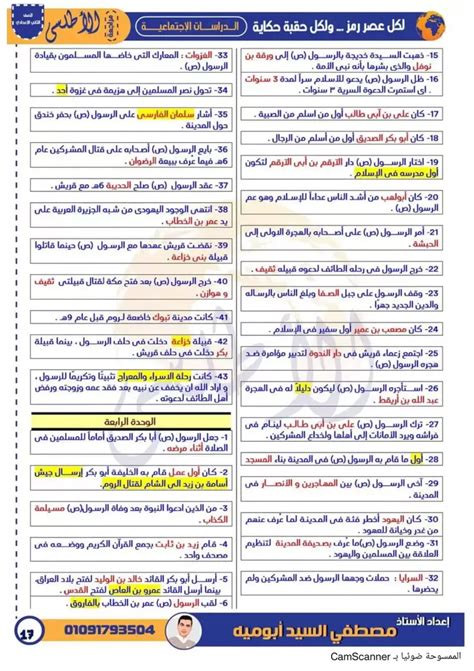 لكل عصر رمز ... ولكل حقبة حكاية
الدراسات الإجتماعية
مراجعة
الأطلس
15- ذهبت السيدة خديجة بالرسول (ص) إلى ورقة بن
نوفل والذى بشرها بأنه نبى الأمة .
16- ظل الرسول (ص) يدعو للاسلام سراً لمدة 3 سنوات
. اي استمرت الدعوة السرية 3 سنوات .
17- كان على بن أبى طالب أول من اسلم من الصبية .
18- كان أبو بكر الصديق أول من أسلم من الرجال .
19- اختار الرسول (ص) دار الأرقم بن أبى الأرقم لتكون
أول مدرسه فى الإسلام .
20- كان أبولهب من أشد الناس عداءاً للإسلام وهو عم
الرسول (ص) .
21- أمر الرسول (ص) على أصحابه بالهجرة الاولى إلى
الحبشة .
22- خرج الرسول فى رحله الطائف لدعوه قبيله ثقيف .
23- وقف الرسول على جبل الصفا وبلغ الناس بالرساله
والدين الجديد جهراً .
24- كان مصعب بن عمير أول سفير فى الإسلام .
25- اجتمع زعماء قريش فى دار الندوة لتدبير مؤامرة ضد
هجره الرسول (ص) .
26- استأجره الرسول (ص) ليكون دليلاً له فى الهجرة
عبد الله بن أريقط .
27- ترك الرسول (ص) على بن أبى طالب لينام فى
فراشه ويرد الأمانات إلى أهلها ولخداع المشركين .
28- أول ما قام به الرسول (ص) فى المدينة بناء المسجد
29- آخى الرسول (ص) بين المهاجرين و الأنصار فى
المدينة .
30- كان اليهود أخطر فئة فى المدينة لما عرف عنهم
من غدر وخيانة للعهود .
31- وضع الرسول (ص) ما عرف بصحيفة المدينة لتنظيم
العلاقة بين المسلمين واليهود .
32- السرايا : حملات وجهها الرسول ضد المشركين ولم
يحضرها .
33- الغزوات : المعارك التى خاضها المسلمون بقيادة
الرسول (ص) .
34- تحول نصر المسلمين إلى هزيمة فى غزوة أحد .
35- أشار سلمان الفارسى على الرسول (ص) بحفر خندق
حول المدينة .
36- بايع الرسول (ص) أصحابه على قتال المشركين عام
6هـ فيما عرف ببيعة الرضوان .
37- عقد الرسول (ص) صلح الحديبية 6هـ مع قريش .
38- انتهى الوجود اليهودى من شبه الجزيرة العربية على
يد عمر بن الخطاب .
39- نقضت قريش عهدها مع الرسول (ص) حينما قاتلوا
قبيلة بنى خزاعة .
40- خرج الرسول (ص) بعد فتح مكة لقتال قبيلتى ثقيف
و هوازن .
41- كانت مدينة تبوك خاضعة لـروم قبل عام 9هـ .
42- قبيلة خزاعة دخلت فى حلف الرسول ... بينما قبيلة
بكر دخلت فى حلف قريش .
43- كانت رحلة الاسراء والمعراج تثبيتًا وتكريمًا للرسول
و اراد الله ان يخفف عن نبيه بعد فقد عمه وزوجته ورفض
أهل الطائف لدعوته .
الوحدة الرابعة
1- جعل الرسول (ص) أبا بكر الصديق أماماً للمسلمين فى
الصلاة أثناء مرضه .
2- كان أول عمل قام به الخليفة أبو بكر إرسال جيش
أسامة بن زيد الى الشام لقتال الروم .
3- من الذين ادعوا النبوة بعد وفاة الرسول (ص) مسيلمة
الكذاب .
4- قام زيد بن ثابت بجمع القرآن الكريم ووضعه فى
مصحف واحد .
5- أرسل أبو بكر القائد خالد بن الوليد لفتح بلاد العراق،
بينما أرسل القائد عمرو بن العاص لفتح القدس .
6- لقب الرسول (ص) عمر بن الخطاب بالفاروق .
إعداد الأستاذ
مصطفي السيد أبوميه
01091793504
17
الممسوحة ضوئيا بـ CamScanner